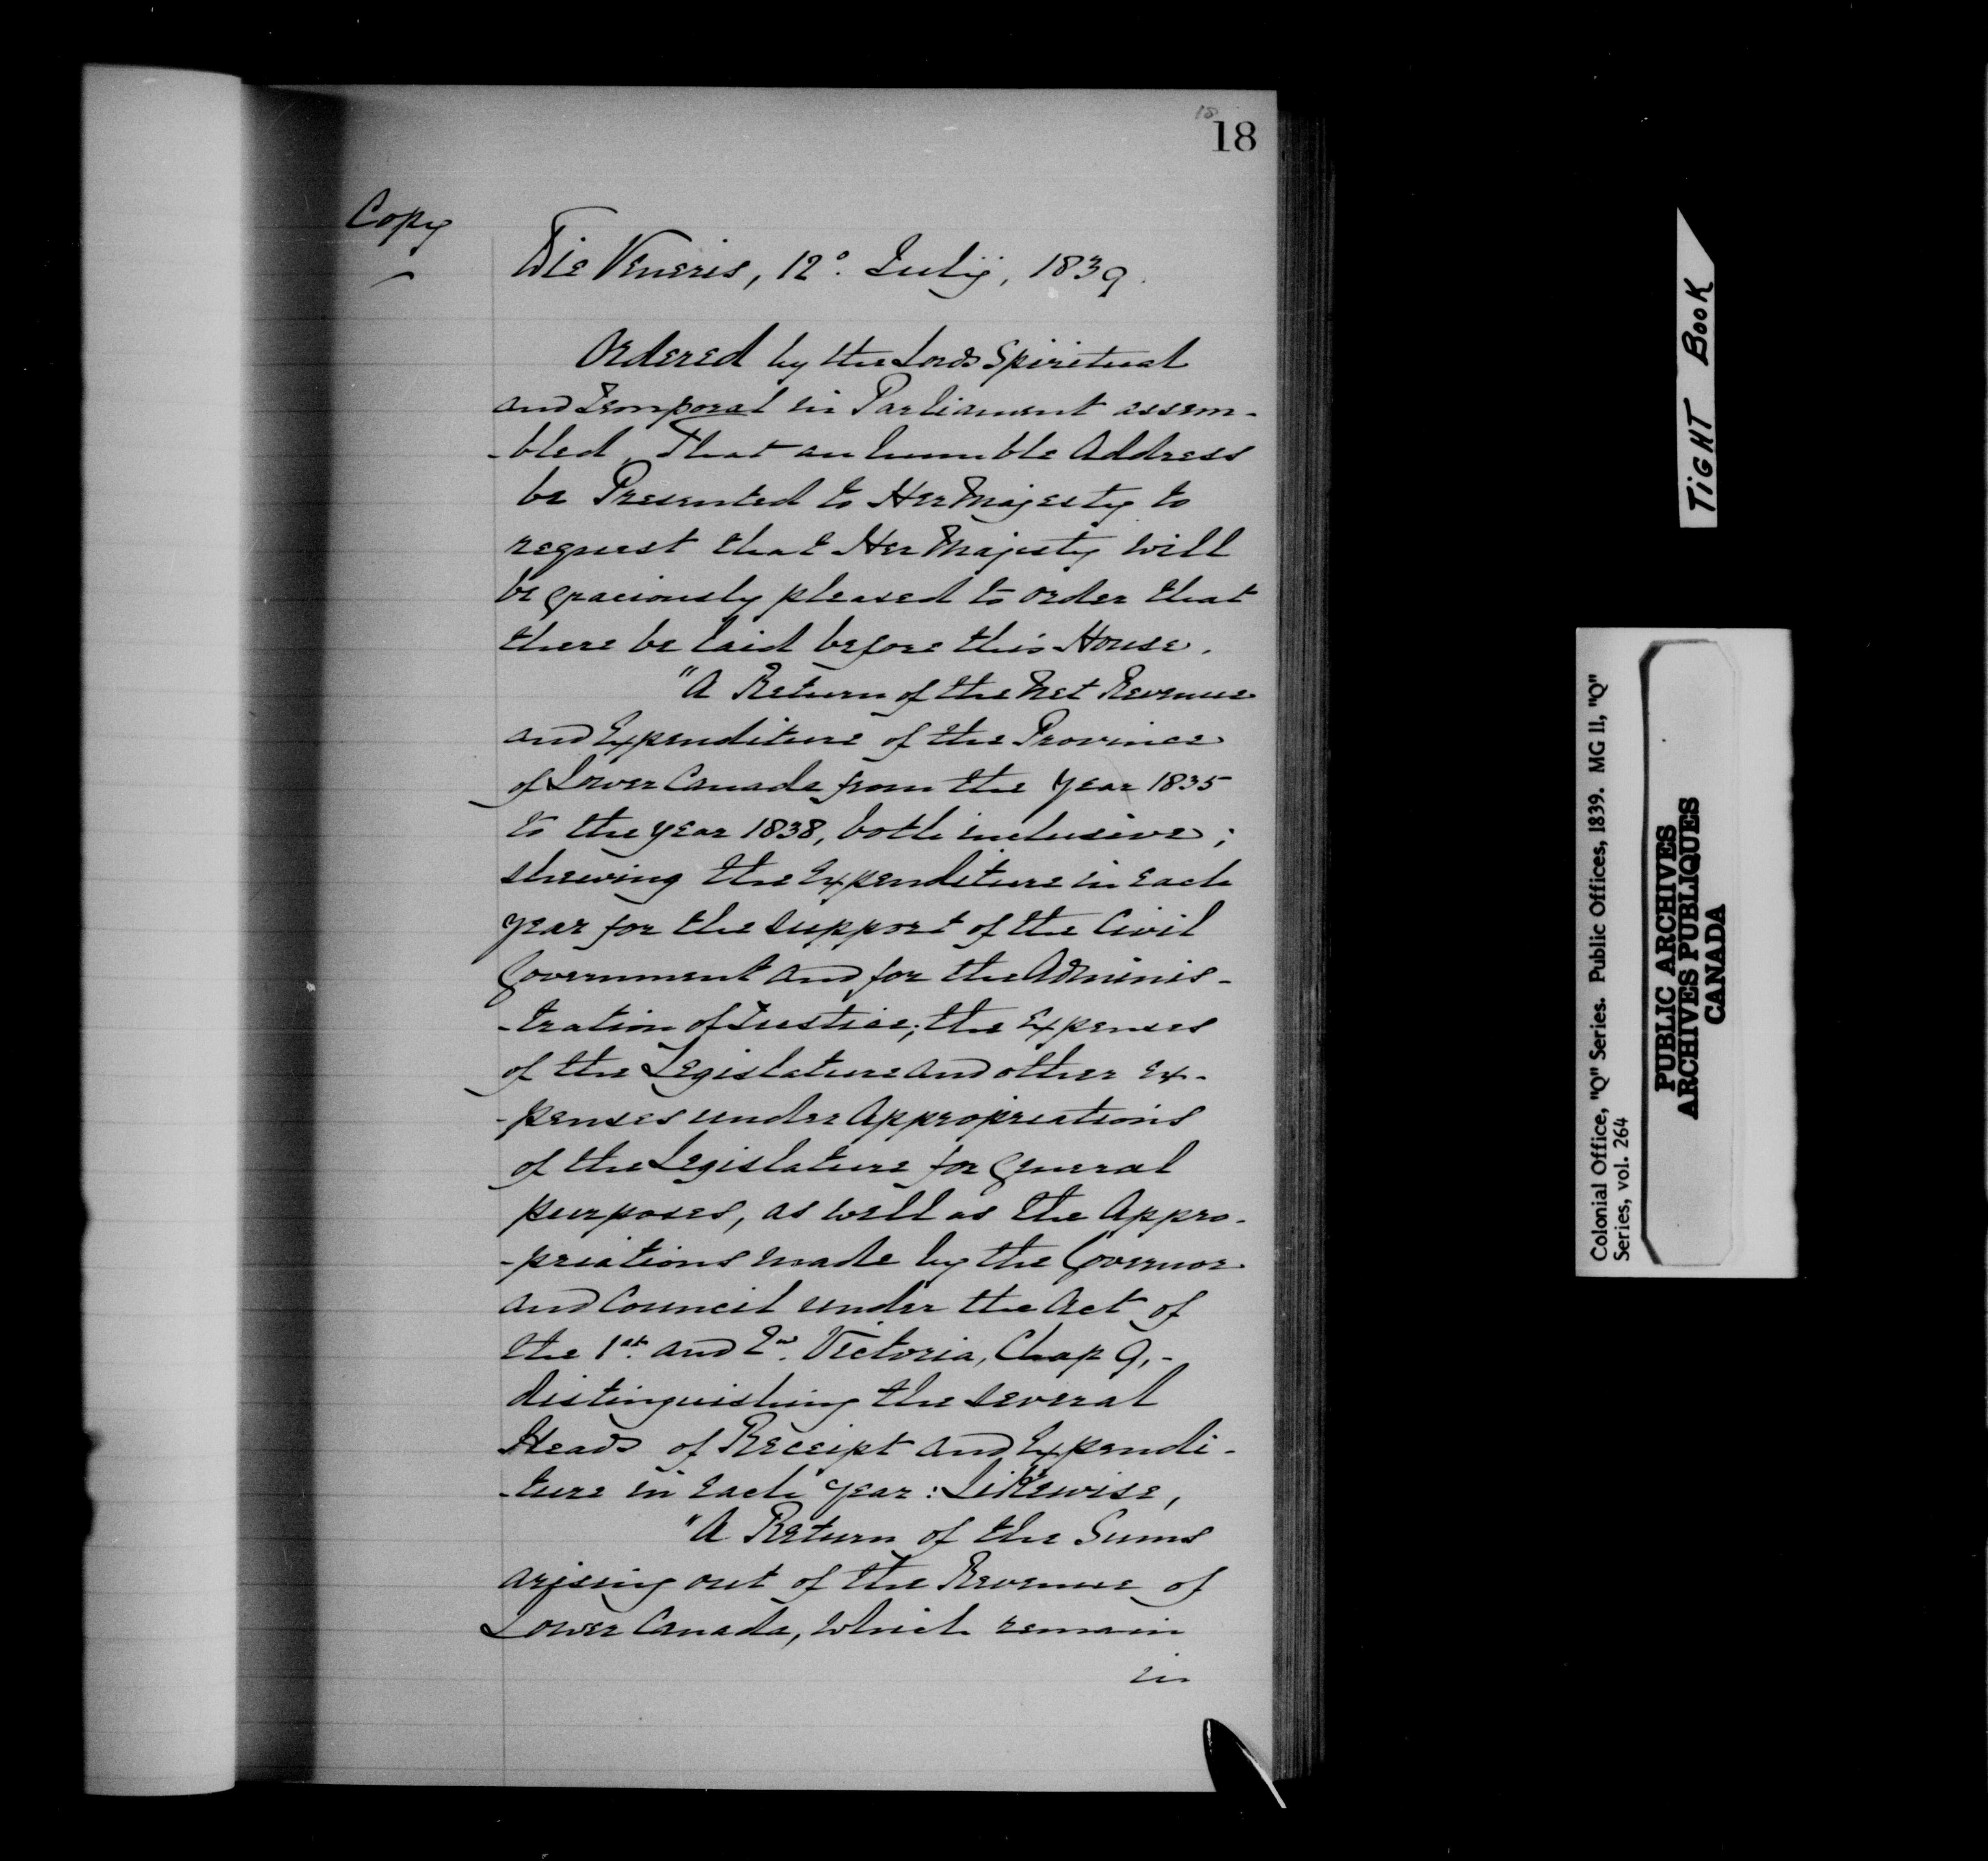 18
18
Copy
Die Veneris, 12º. Julij, 1839.
Ordered by the Lords Spiritual
and Temporal in Parliament assem-
-bled, That an humble Address
be Presented to Her Majesty to
request that Her Majesty will
be graciously pleased to order that
there be laid before this House.
"A Return of the Net Revenue
and Expenditure of the Province
of Lower Canada from the Year 1835
to the year 1838, both inclusive;
shewing the Expenditure in each
year for the support of the Civil
Government and for the Adminis-
-tration of Justice; the Expenses
of the Legislature and other Ex-
-penses under Appropriations
of the Legislature for General
purposes, as well as the Appro-
-priations made by the Governor
and Council under the Act of
the 1st. and 2nd. Victoria, Chap 9,-
distinguishing the several
Heads of Receipt and Expendi-
-ture in each year: Likewise,
"A Return of the Sums
arising out of the Revenue of
Lower Canada, which remain
in
TIGHT BOOK
Colonial Office, "Q" Series. Public Offices, 1839. MG 11, "Q"
Series, vol. 264
PUBLIC ARCHIVES
ARCHIVES PUBLIQUES
CANADA